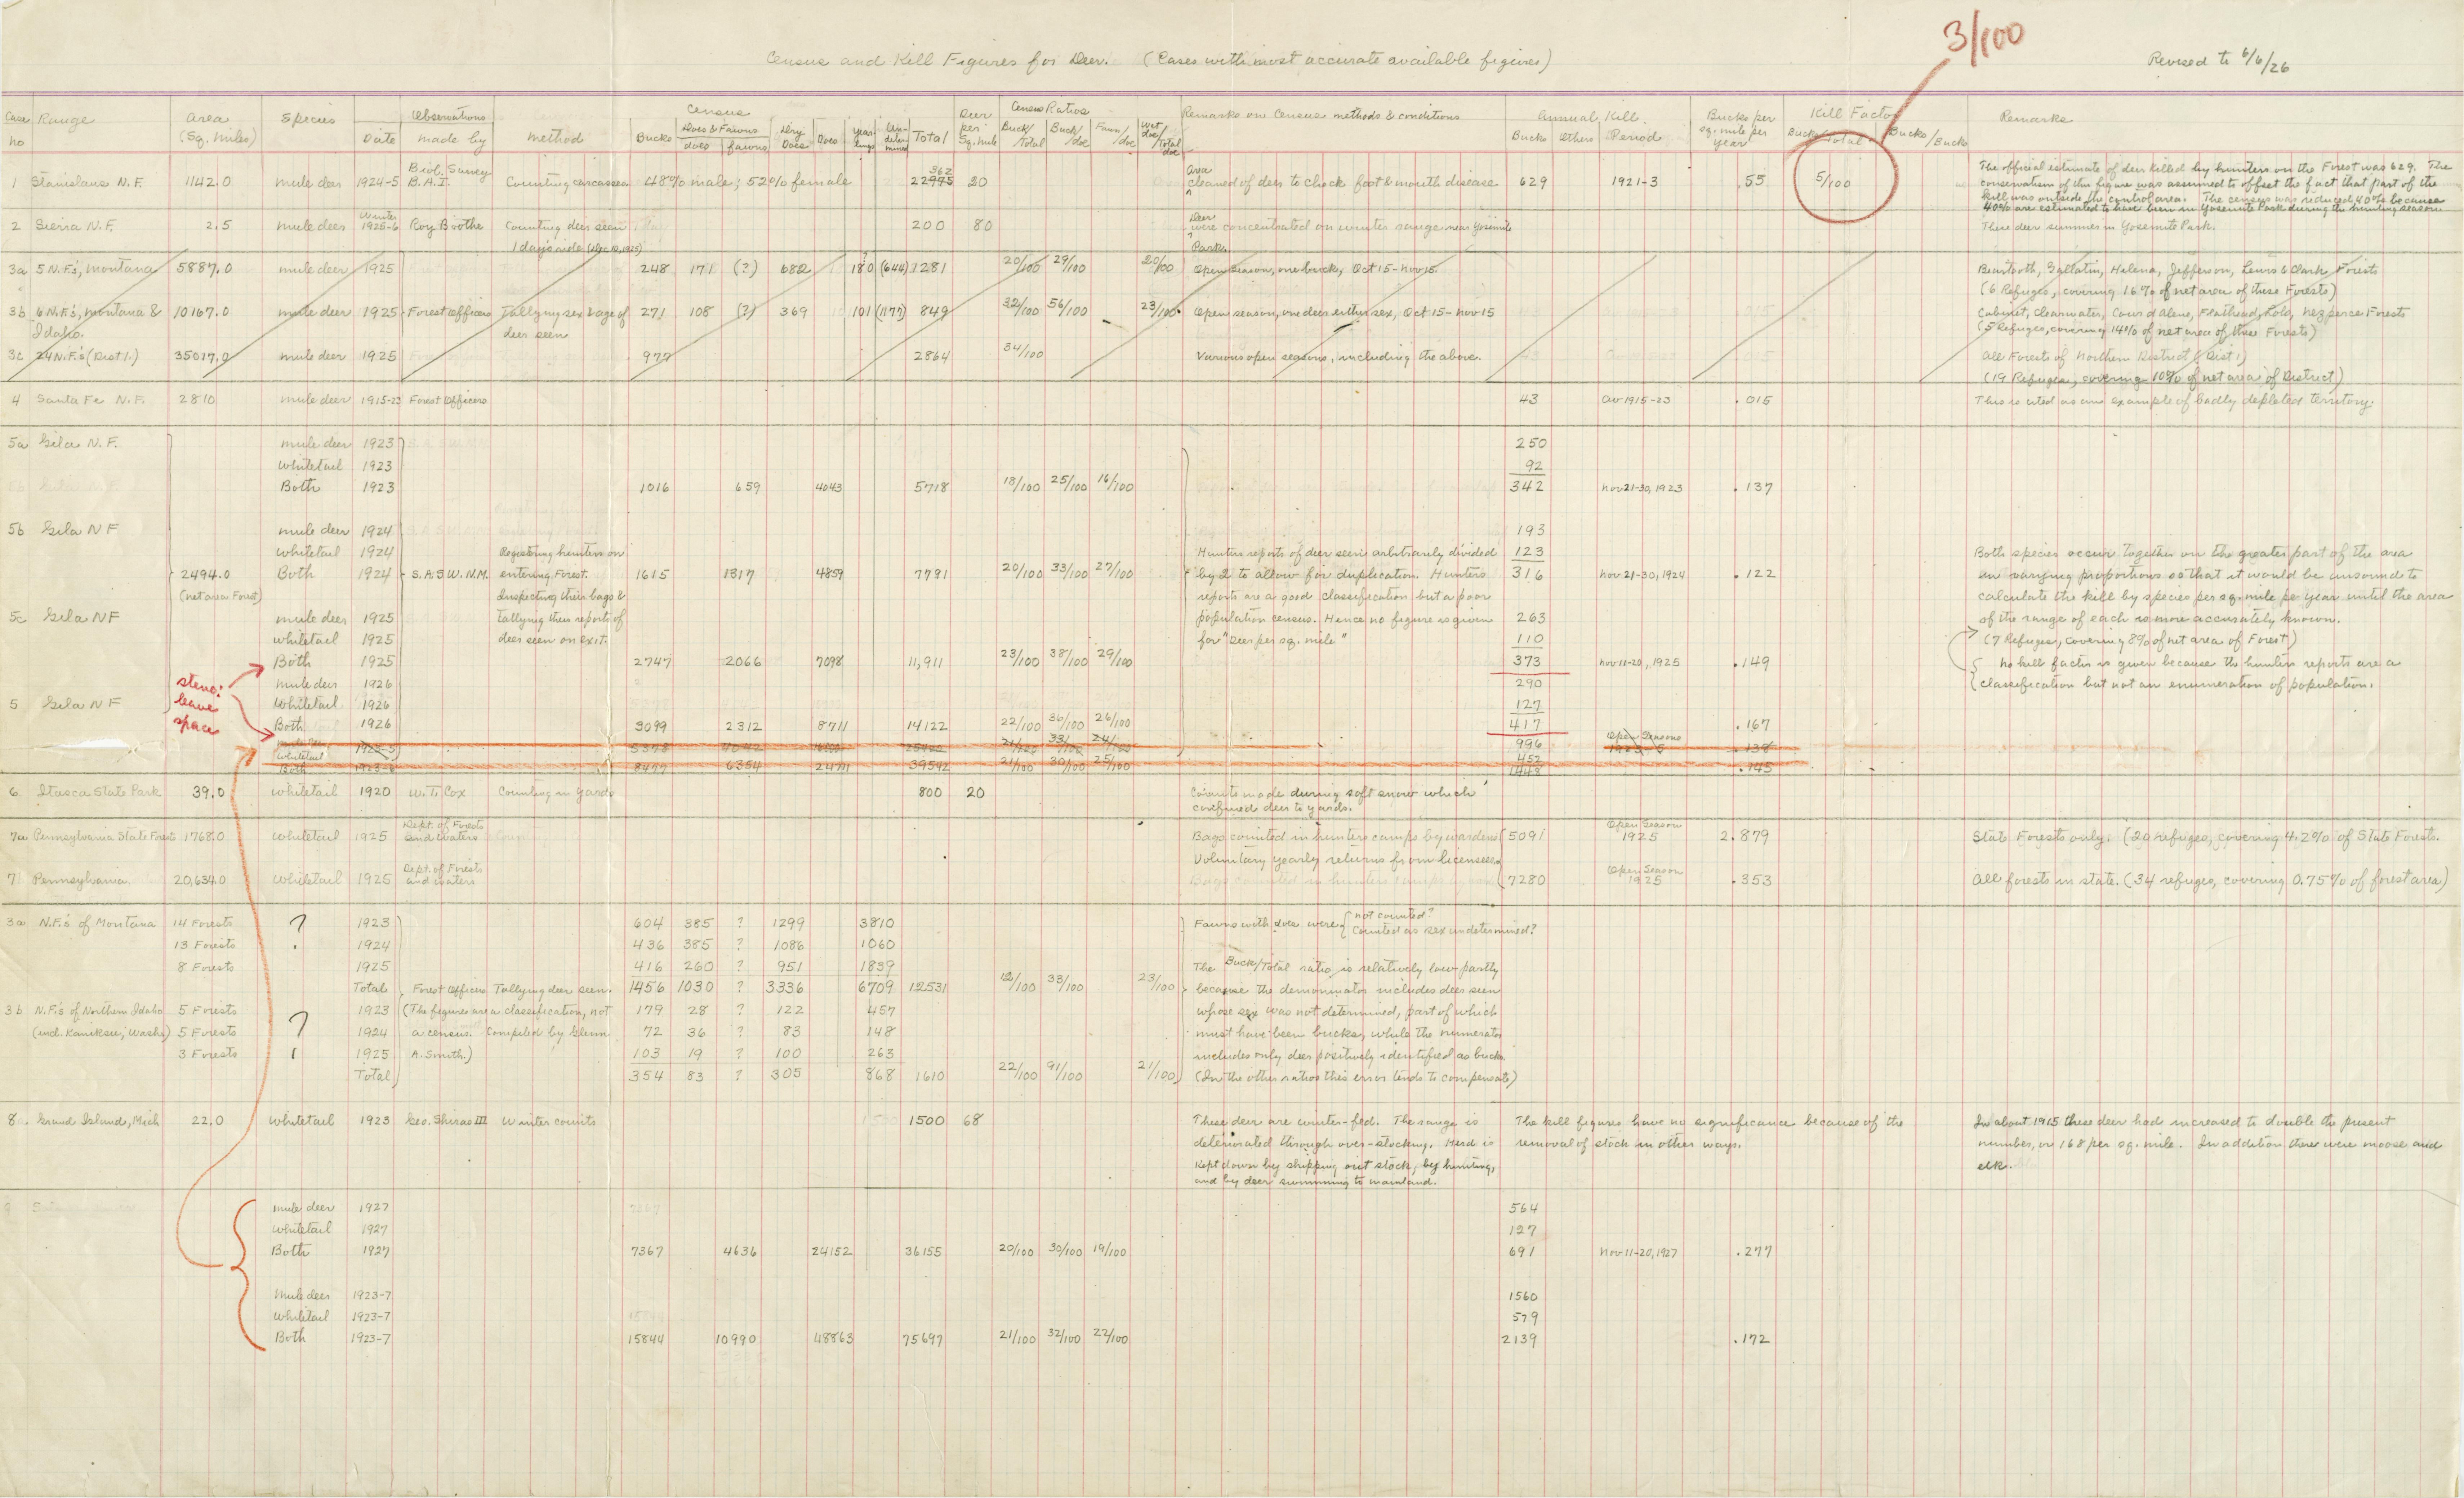 3/100
Census and Kill Figures for Deer. (Cases with most accurate available figures)
Revised to 6/6/26
Case no Range Area (Sq. Miles) Species Date Observations made by Method Census Bucks Does & Fawns does fawns Dry Does Does Year-lings Un-deter-mined Total Deer per Sq. mile Census Ratios Buck/Total Buck/doe Fawn/doe Wet doe/Total doe Remarks on Census methods & conditions Annual Kill Bucks Others Period Bucks per sq. mile per year Kill Factor Bucks/Total Bucks/Buck Remarks
1 Stanislaus N.F. 1142.0 mule deer 1924-5 Biol. Survey B.A.I. Counting carcasses 48% male; 52% female 362 22975 20 Area cleaned of deer to check foot & mouth disease 629 1921-3 .55 5/100
The official estimate of deer killed by hunters on the Forest was 629. The
conservatism of this figure was assumed to offset the fact that part of the
kill was outside the control area. The census was reduced 40% because
40% are estimated to have been in Yosemite Park during the hunting season
2 Sierra N.F. 2.5 mule deer Winter 1925-6 Roy Boothe Counting deer seen 1 day's ride (Dec 10, 1925) 200 80 Deer were concentrated on winter range near Yosemite Park. These deer summer in Yosemite Park.
3a 5 N.F.'s, Montana 5887.0 mule deer 1925 248 171 (?) 682 180 (644) 1281 20/100 29/100 20/100 Open season, one buck, Oct 15-Nov 15. Beartooth, Gallatin, Helena, Jefferson, Lewis & Clark Forests
(6 Refuges, covering 16% of net area of these Forests)
3b 6 N.F.'s, Montana & Idaho. 10167.0 mule deer 1925 Forest officers Tallying sex & age of deer seen 271 108 (?) 369 101 (1177) 849 32/100 56/100 23/100 Open season, one deer either sex, Oct 15-Nov 15 Cabinet, Clearwater, Coeur d'alene, Flathead, Lolo, Nezperce Forests
(5 Refuges, covering 14% of net area of these Forests)
3c 24 N.F.'s (Dist 1.) 35017.0 mule deer 1925 977 2864 34/100 Various open seasons, including the above. All Forests of Northern District (Dist 1)
(19 Refuges, covering 10% of net area of District)
4 Santa Fe N.F. 2810 mule deer 1915-23 Forest Officers 43 av 1915-23 .015 This is cited as an example of badly depleted territory.
5a Gila N.F. mule deer 1923 250
Whitetail 1923 92
Both 1923 1016 659 4043 5718 18/100 25/100 16/100 342 Nov 21-30, 1923 .137
5b Gila NF mule deer 1924 193
Whitetail 1924 123
2494.0 (net area Forest) Both 1924 S.A. & W. N.M. 1615 1317 4859 7791 20/100 33/100 27/100 316 Nov 21-30, 1924 .122
Registering hunters on
entering Forest.
Inspecting their bags &
tallying their reports of
deer seen on exit.
Hunters reports of deer seen arbitrarily divided
by 2 to allow for duplication. Hunters
reports are a good classification but a poor
population census. Hence no figure is given
for "Deer per sq. mile"
Both species occur together on the greater part of the area
in varying proportions so that it would be unsound to
calculate the kill by species per sq. mile per year until the area
of the range of each is more accurately known.
(7 Refuges, covering 8% of net area of Forest)
No kill factor is given because the hunters reports are a
classification but not an enumeration of population.
5c Gila NF mule deer 1925 263
Whitetail 1925 110
Both 1925 2747 2066 7098 11,911 23/100 38/100 29/100 373 Nov 11-20, 1925 .149
steno: leave space
mule deer 1926 290
5 Gila NF Whitetail 1926 127
Both 1926 3099 2312 8711 14122 22/100 36/100 26/100 417 .167
1923-5 21/100 33/100 24/100 996 Open Seasons 1923-5 .138
Whitetail 452
Both 8477 6354 24711 39542 21/100 25/100 1448 .145
6 Itasca State Park 39.0 Whitetail 1920 W.T. Cox Counting in yards 800 20 Counts made during soft snow which
confined deer to yards.
7a Pennsylvania State Forest 1768.0 Whitetail 1925 Dept. of Forests and Waters Bags counted in hunters camps by wardens 5091 Open Season 1925 2.879 State Forests only. (20 refuges, covering 4.2% of State Forests.
Voluntary yearly returns from licensees
7 Pennsylvania 20,634.0 Whitetail 1925 Dept. of Forests and Waters 7280 Open Season 1925 .353 All forests in state. (34 refuges, covering 0.75% of forest area)
3a N.F.'s of Montana 14 Forests ? 1923 604 385 ? 1299 3810 Fawns with does were { not counted? counted as sex undetermined?
13 Forests 1924 436 385 ? 1086 1060
8 Forests 1925 416 260 ? 951 1839
Total Forest Officers Tallying deer seen. 1456 1030 ? 3336 6709 12531 12/100 33/100 23/100
The Buck/Total ratio is relatively low partly
because the denominator includes deer seen
whose sex was not determined, part of which
must have been bucks, while the numerator
includes only deer positively identified as bucks.
(In the other ratios this error tends to compensate)
3b N.F.'s of Northern Idaho 5 Forests ? 1923 (The figures are a classification, not 179 28 ? 122 457
(incl. Kaniksu, Wash.) 5 Forests 1924 a census. Compiled by Glenn 72 36 ? 83 148
3 Forests 1925 A. Smith.) 103 19 ? 100 263
Total 354 83 ? 305 868 1610 22/100 91/100 21/100
8 Grand Island, Mich 22.0 Whitetail 1923 Geo. Shiras III Winter counts 1500 68
These deer are winter-fed. The range is
deteriorated through over-stocking. Herd is
kept down by shipping out stock, by hunting,
and by deer swimming to mainland.
The kill figures have no significance because of the
removal of stock in other ways.
In about 1915 these deer had increased to double the present
number, or 168 per sq. mile. In addition there were moose and
elk.
mule deer 1927 564
Whitetail 1927 127
Both 1927 7367 4636 24152 36155 20/100 30/100 19/100 691 Nov 11-20, 1927 .277
Mule deer 1923-7 1560
Whitetail 1923-7 579
Both 1923-7 15844 10990 48863 75697 21/100 32/100 22/100 2139 .172